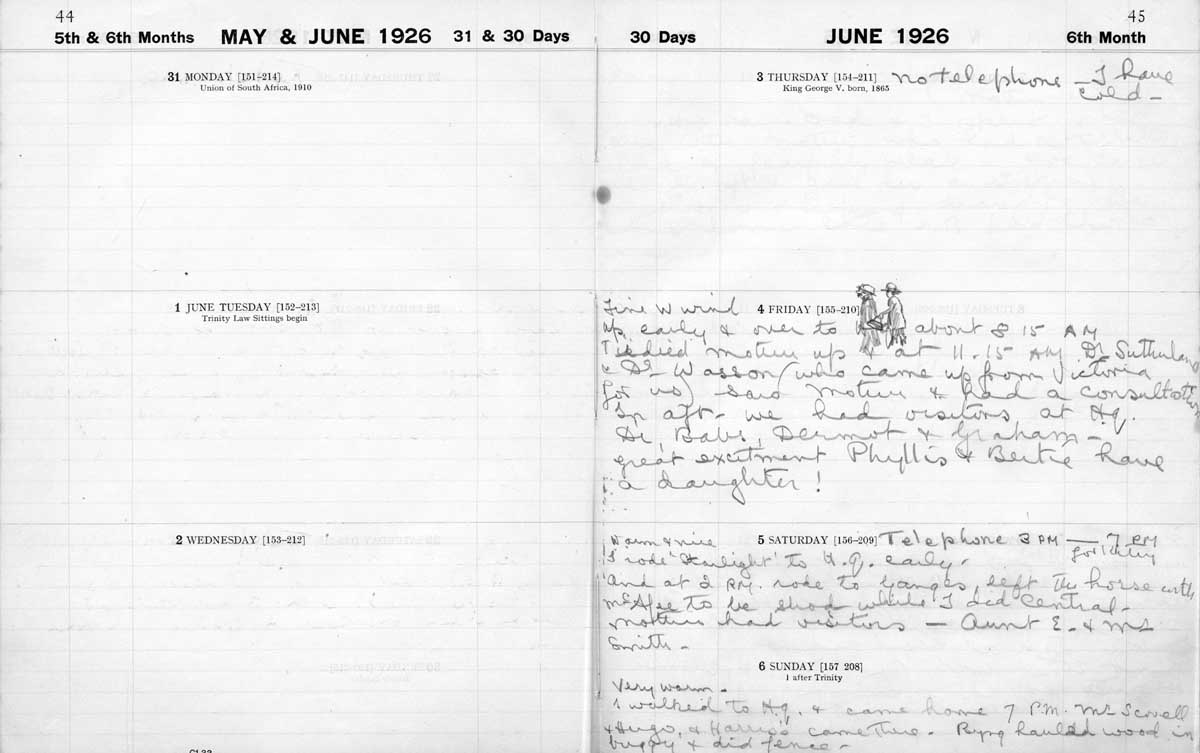 44
5th & 6th Months MAY & JUNE 1926 31 & 30 Days
31 MONDAY [151–214]
Union of South Africa, 1910
1 JUNE TUESDAY [152–213]
Trinity Law Sittings begin
2 WEDNESDAY [153–212]
45
30 Days JUNE 1926 6th Month
3 THURSDAY [154–211] no telephone — I have
King George V. born, 1865 cold —
Fine W wind 4 FRIDAY [155–210]
up early & over to about 8 15 AM
mother up & at 11.15 AM Dr Sutherland
& Dr Wasson (who came up from Victoria
for us) said mother & had a consult
In aft – we had visitors at H.q.
Di, Babs, Dermot & Graham –
great excitment Phyllis & Bertie have
a daughter!
Warm & nice 5 SATURDAY [156–209] Telephone 3 PM — 7 PM
I rode 'Starlight' to H.q. early.
And at 2 P.M. rode to Ganges, left the horse with
McAfee to be shod while I did Central –
Mother had visitors — Aunt E. & Mrs
Smith –
6 SUNDAY [157 208]
1 after Trinity
Very warm –
I walked to H.q. & came home 7 P.M. Mrs Scovell
& Hugo, & Harris came there – hauled wood in
buggy & did fence –